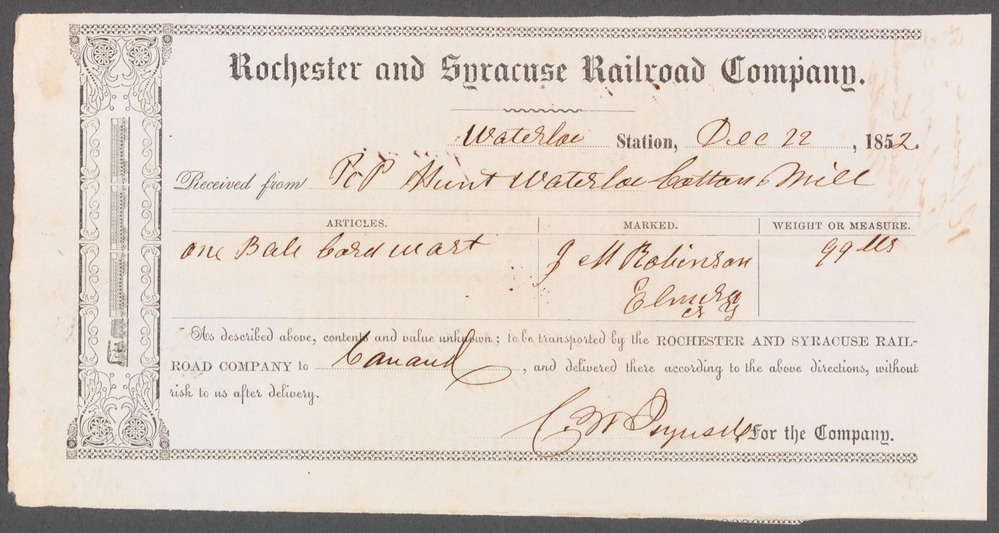 Rochester and Syracuse Railroad Company.
Waterloo Station, Dec 22, 1852.
Received from P & P Hunt Waterloo Cotton Mill
ARTICLES. MARKED. WEIGHT OR MEASURE.
One Bale Card wast J M Robinson 99 lbs
Elmira
N Y
As described above, contents and value unknown; to be transported by the ROCHESTER AND SYRACUSE RAIL-
ROAD COMPANY to Canand, and delivered there according to the above directions, without
risk to us after delivery.
C. W For the Company.